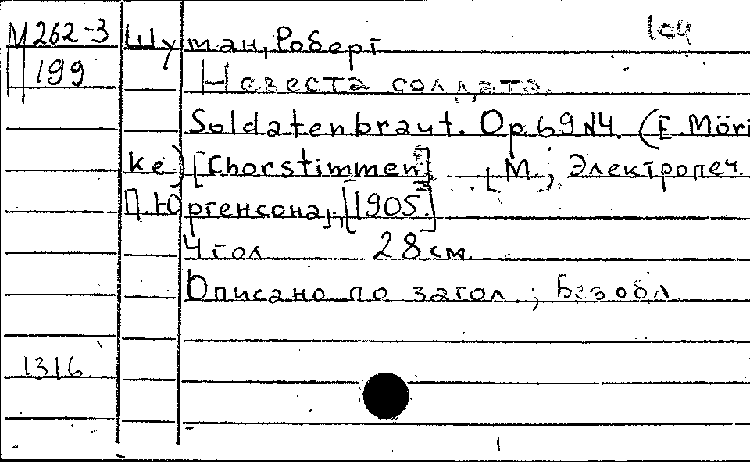 М262-3 Шуман, Роберт
П199 Невеста солдата.
Soldatenbraut. Op. 69 N4. (E. Möri
ke) [Chorstimmen] [М., Электропеч.
П. Юргенсона, [1905.]
4 гол 28 см.
Описано по загол.; Без обл
1316